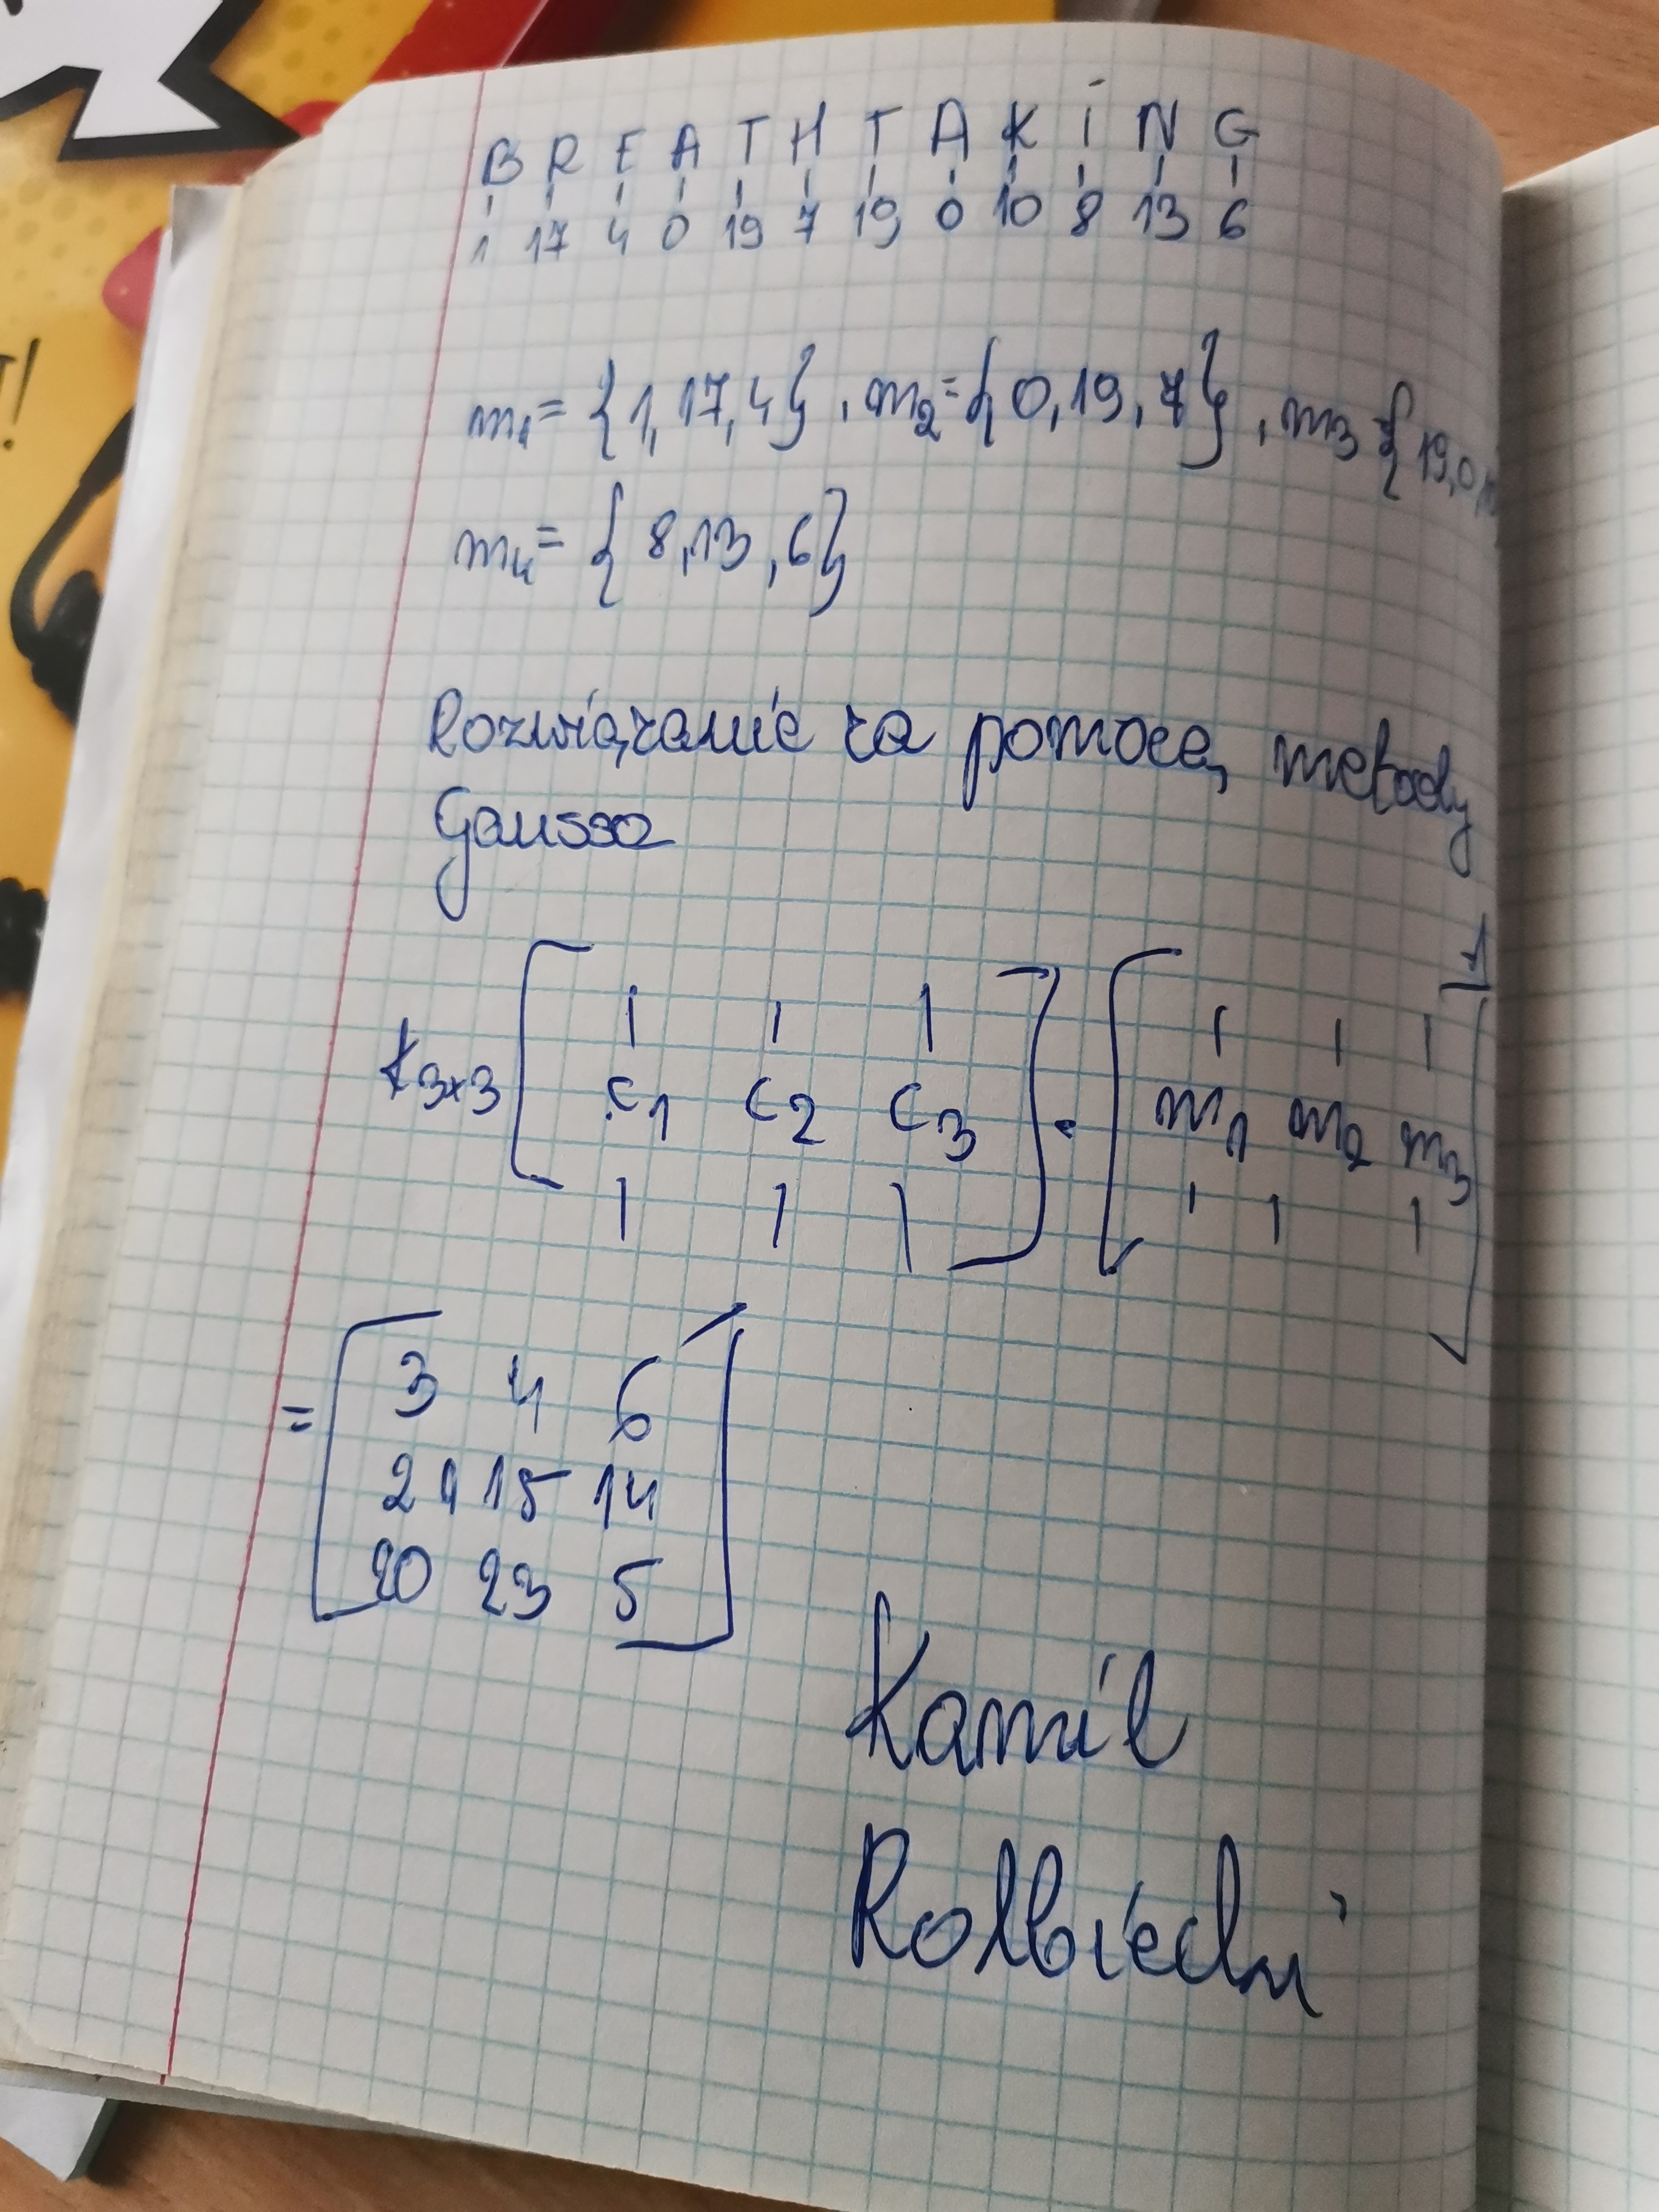 B R E A T H T A K I N G
1 17 4 0 19 7 19 0 10 8 13 6
m1 = {1, 17, 4}, m2 = {0, 19, 7}, m3 {19, 0,
m4 = {8, 13, 6}
Rozwiązanie za pomocą metody
Gaussa
K3x3 [ c1 c2 c3 ] · [ m1 m2 m3 ]-1
= [ 3 4 6
21 15 14
20 23 5 ]
Kamil
Rolbiecki
T!